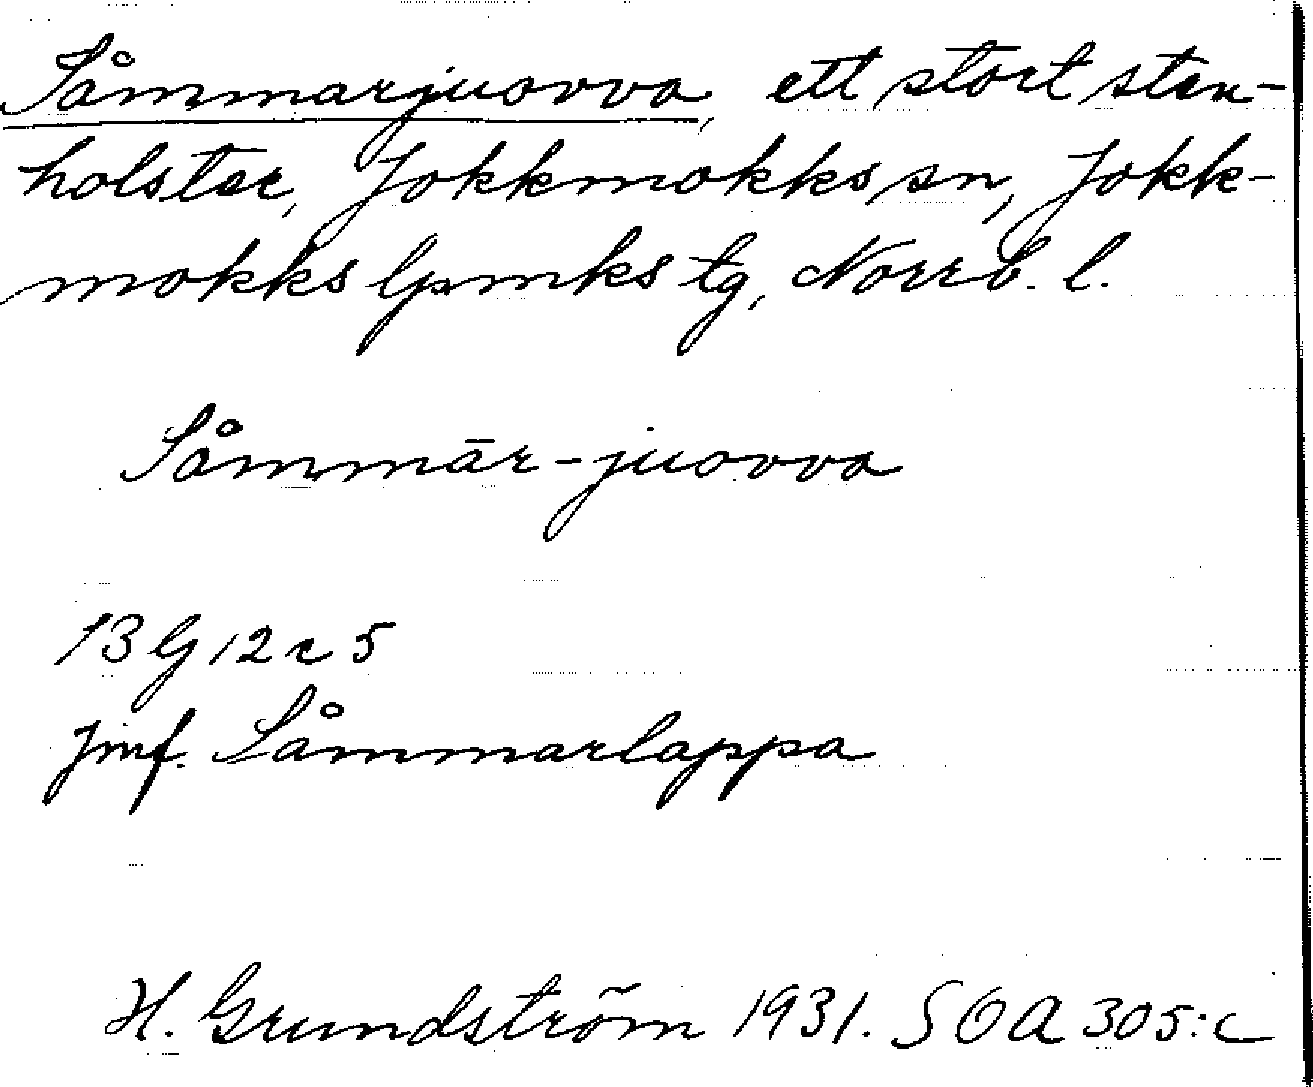 Såmmarjuovva, ett stort sten-
holster, Jokkmokks sn, Jokk-
mokks lpmks tg, Norrb. l.
Såmmār-juovva
13 G 12 c 5
Jmf. Såmmarlappa
H. Grundström 1931. SOA 305:c